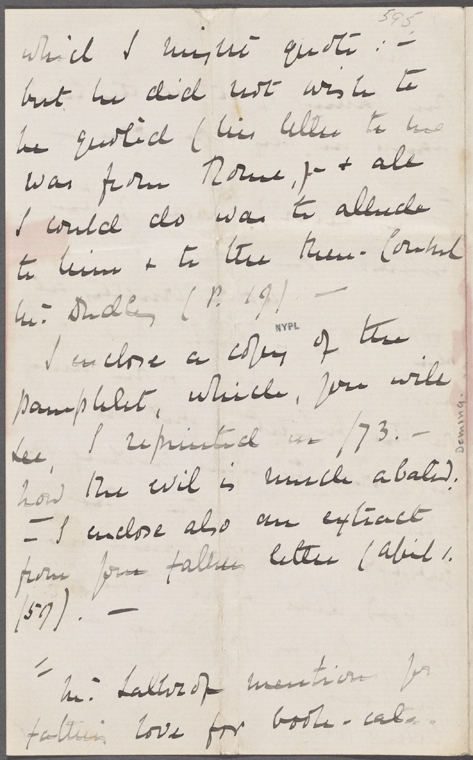 595
which I might quote : –
but he did not wish to
be quoted ( his letter to me
was from Rome, & all
I could do was to allude
to him & to the then Consul
Mr. Dudley ( P. 19 ) –
NYPL
I enclose a copy of the
pamphlet, which, you will
see, I reprinted in /73. –
now the evil is much abated.
= I enclose also an extract
from your father's letter ( April 1.
/59 ) . –
Mr. mentions yr
father's love for book-cats.
Deming.